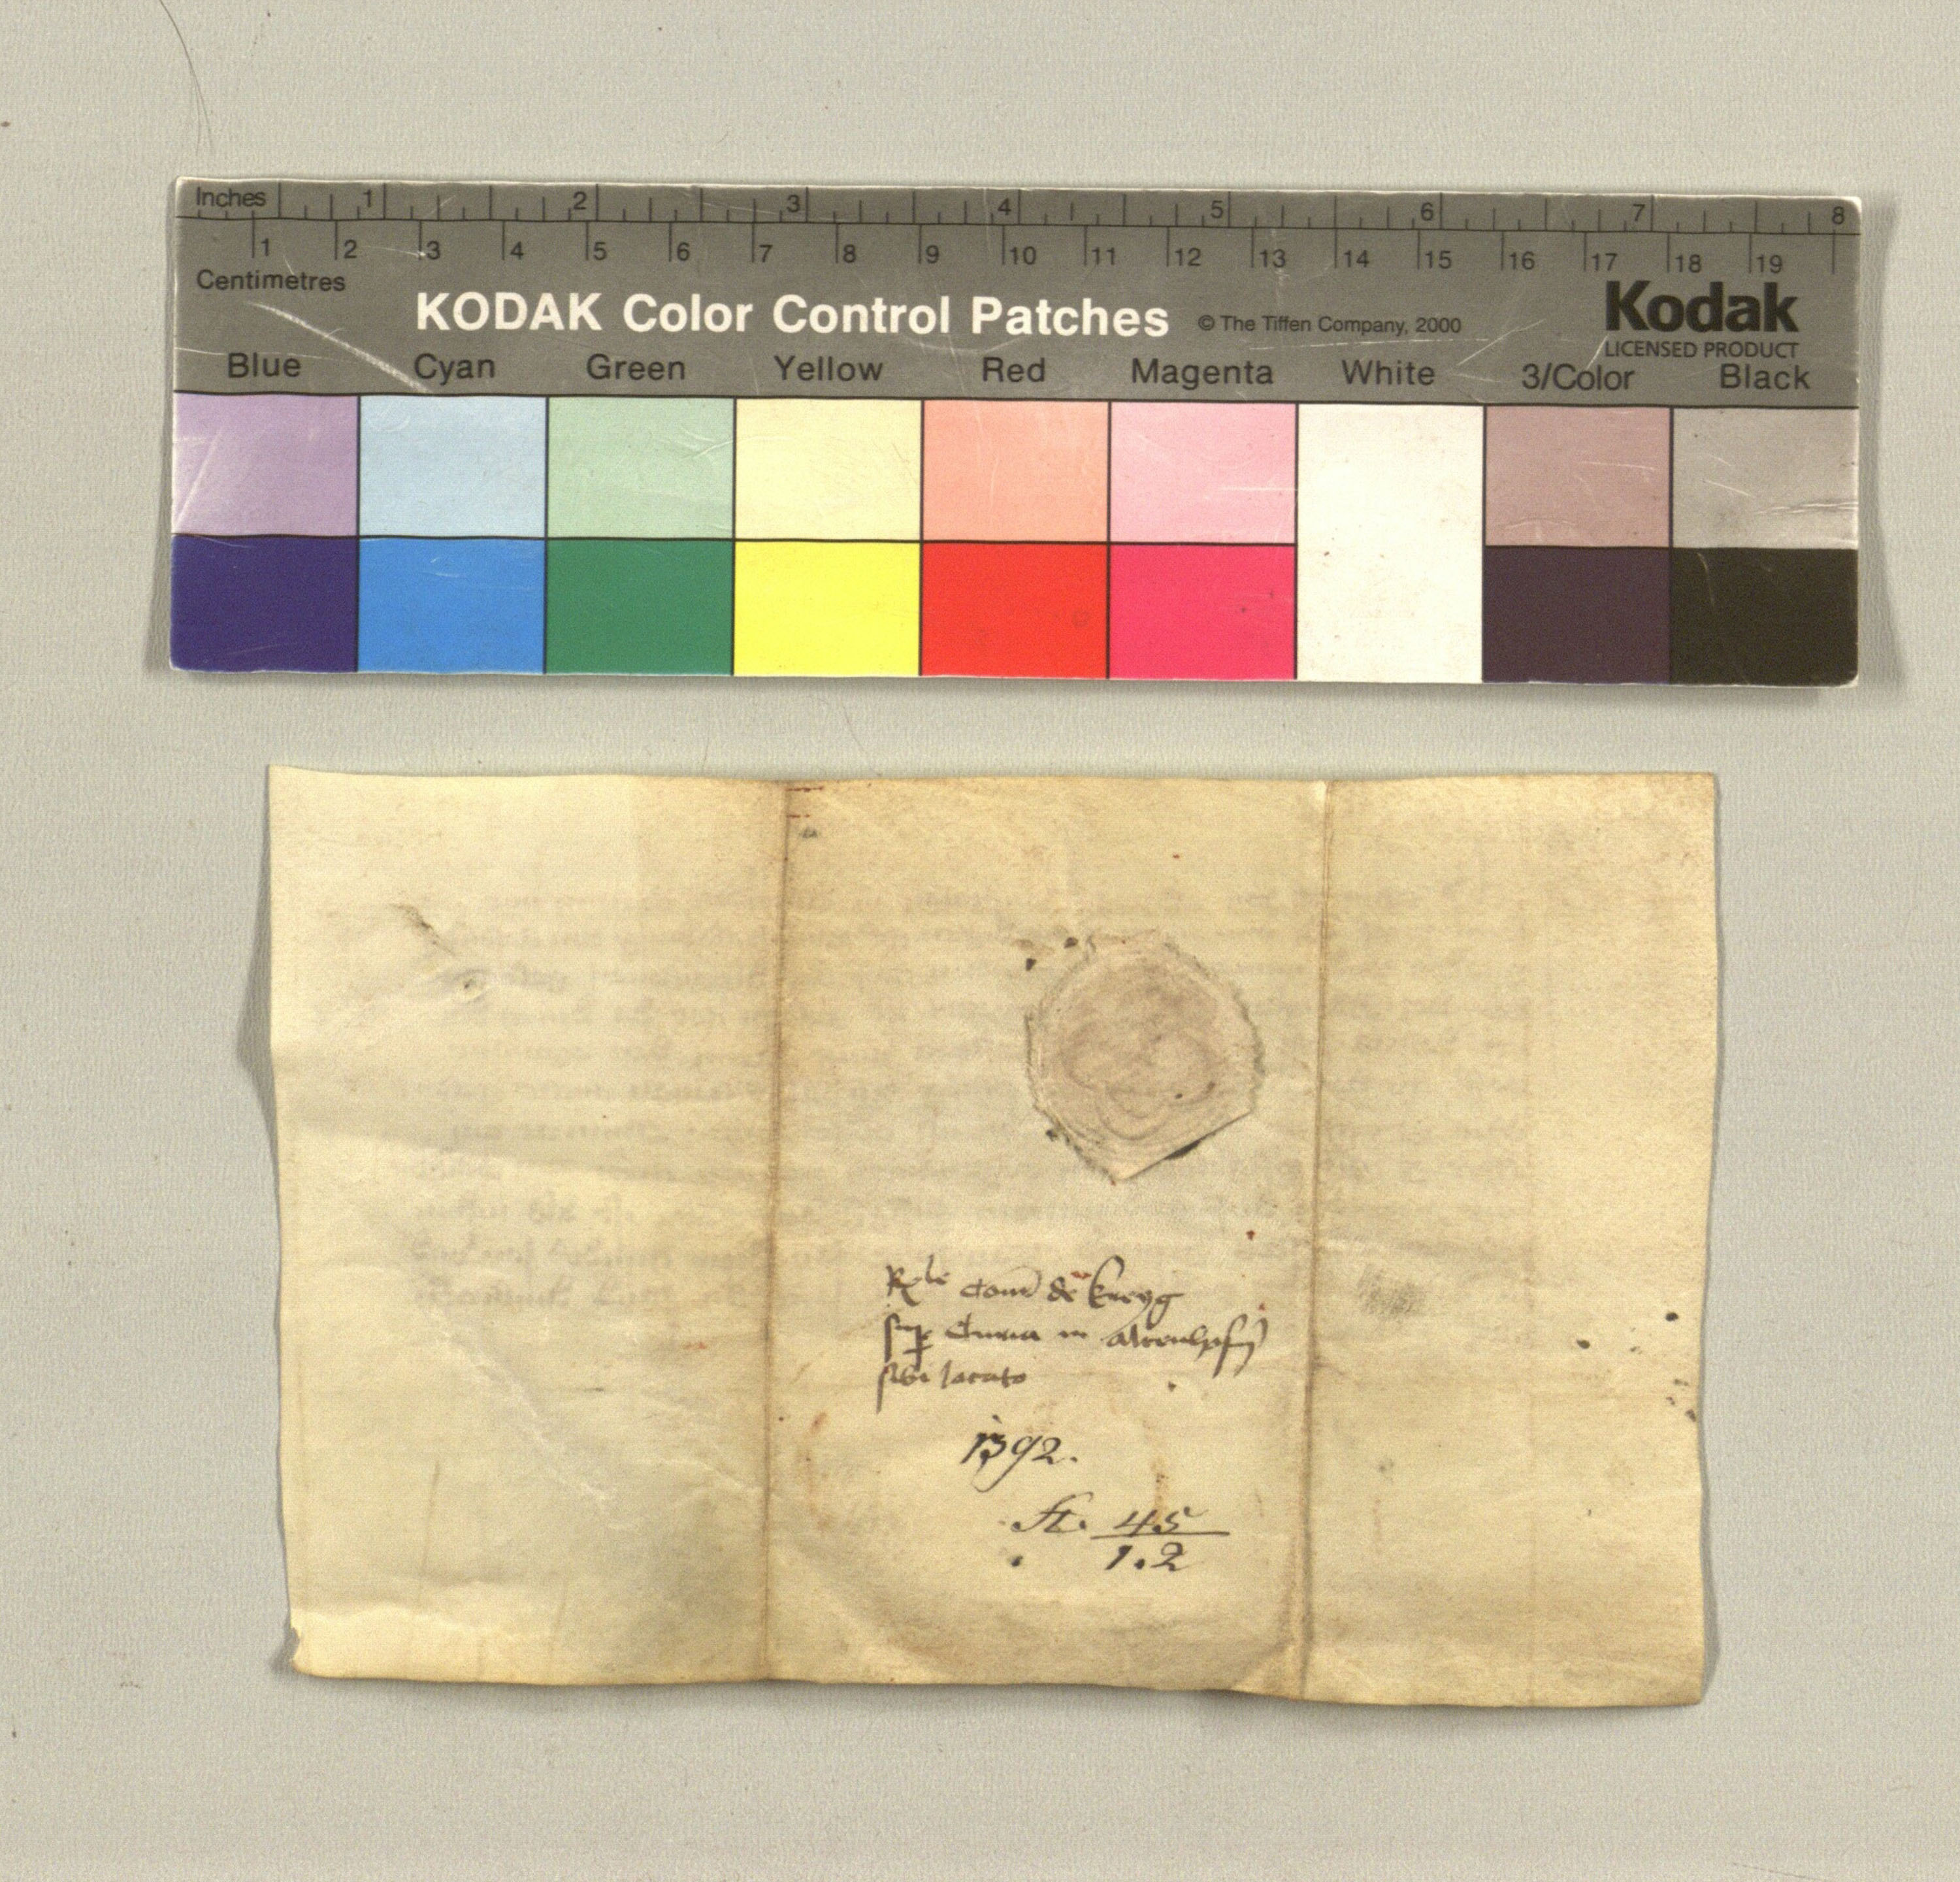 Inches 1 2 3 4 5 6 7 8
1 2 3 4 5 6 7 8 9 10 11 12 13 14 15 16 17 18 19
Centimetres
KODAK Color Control Patches © The Tiffen Company, 2000 Kodak
LICENSED PRODUCT
Blue Cyan Green Yellow Red Magenta White 3/Color Black
de kreyg
Curia in
sibi locato
1392.
45
1.2